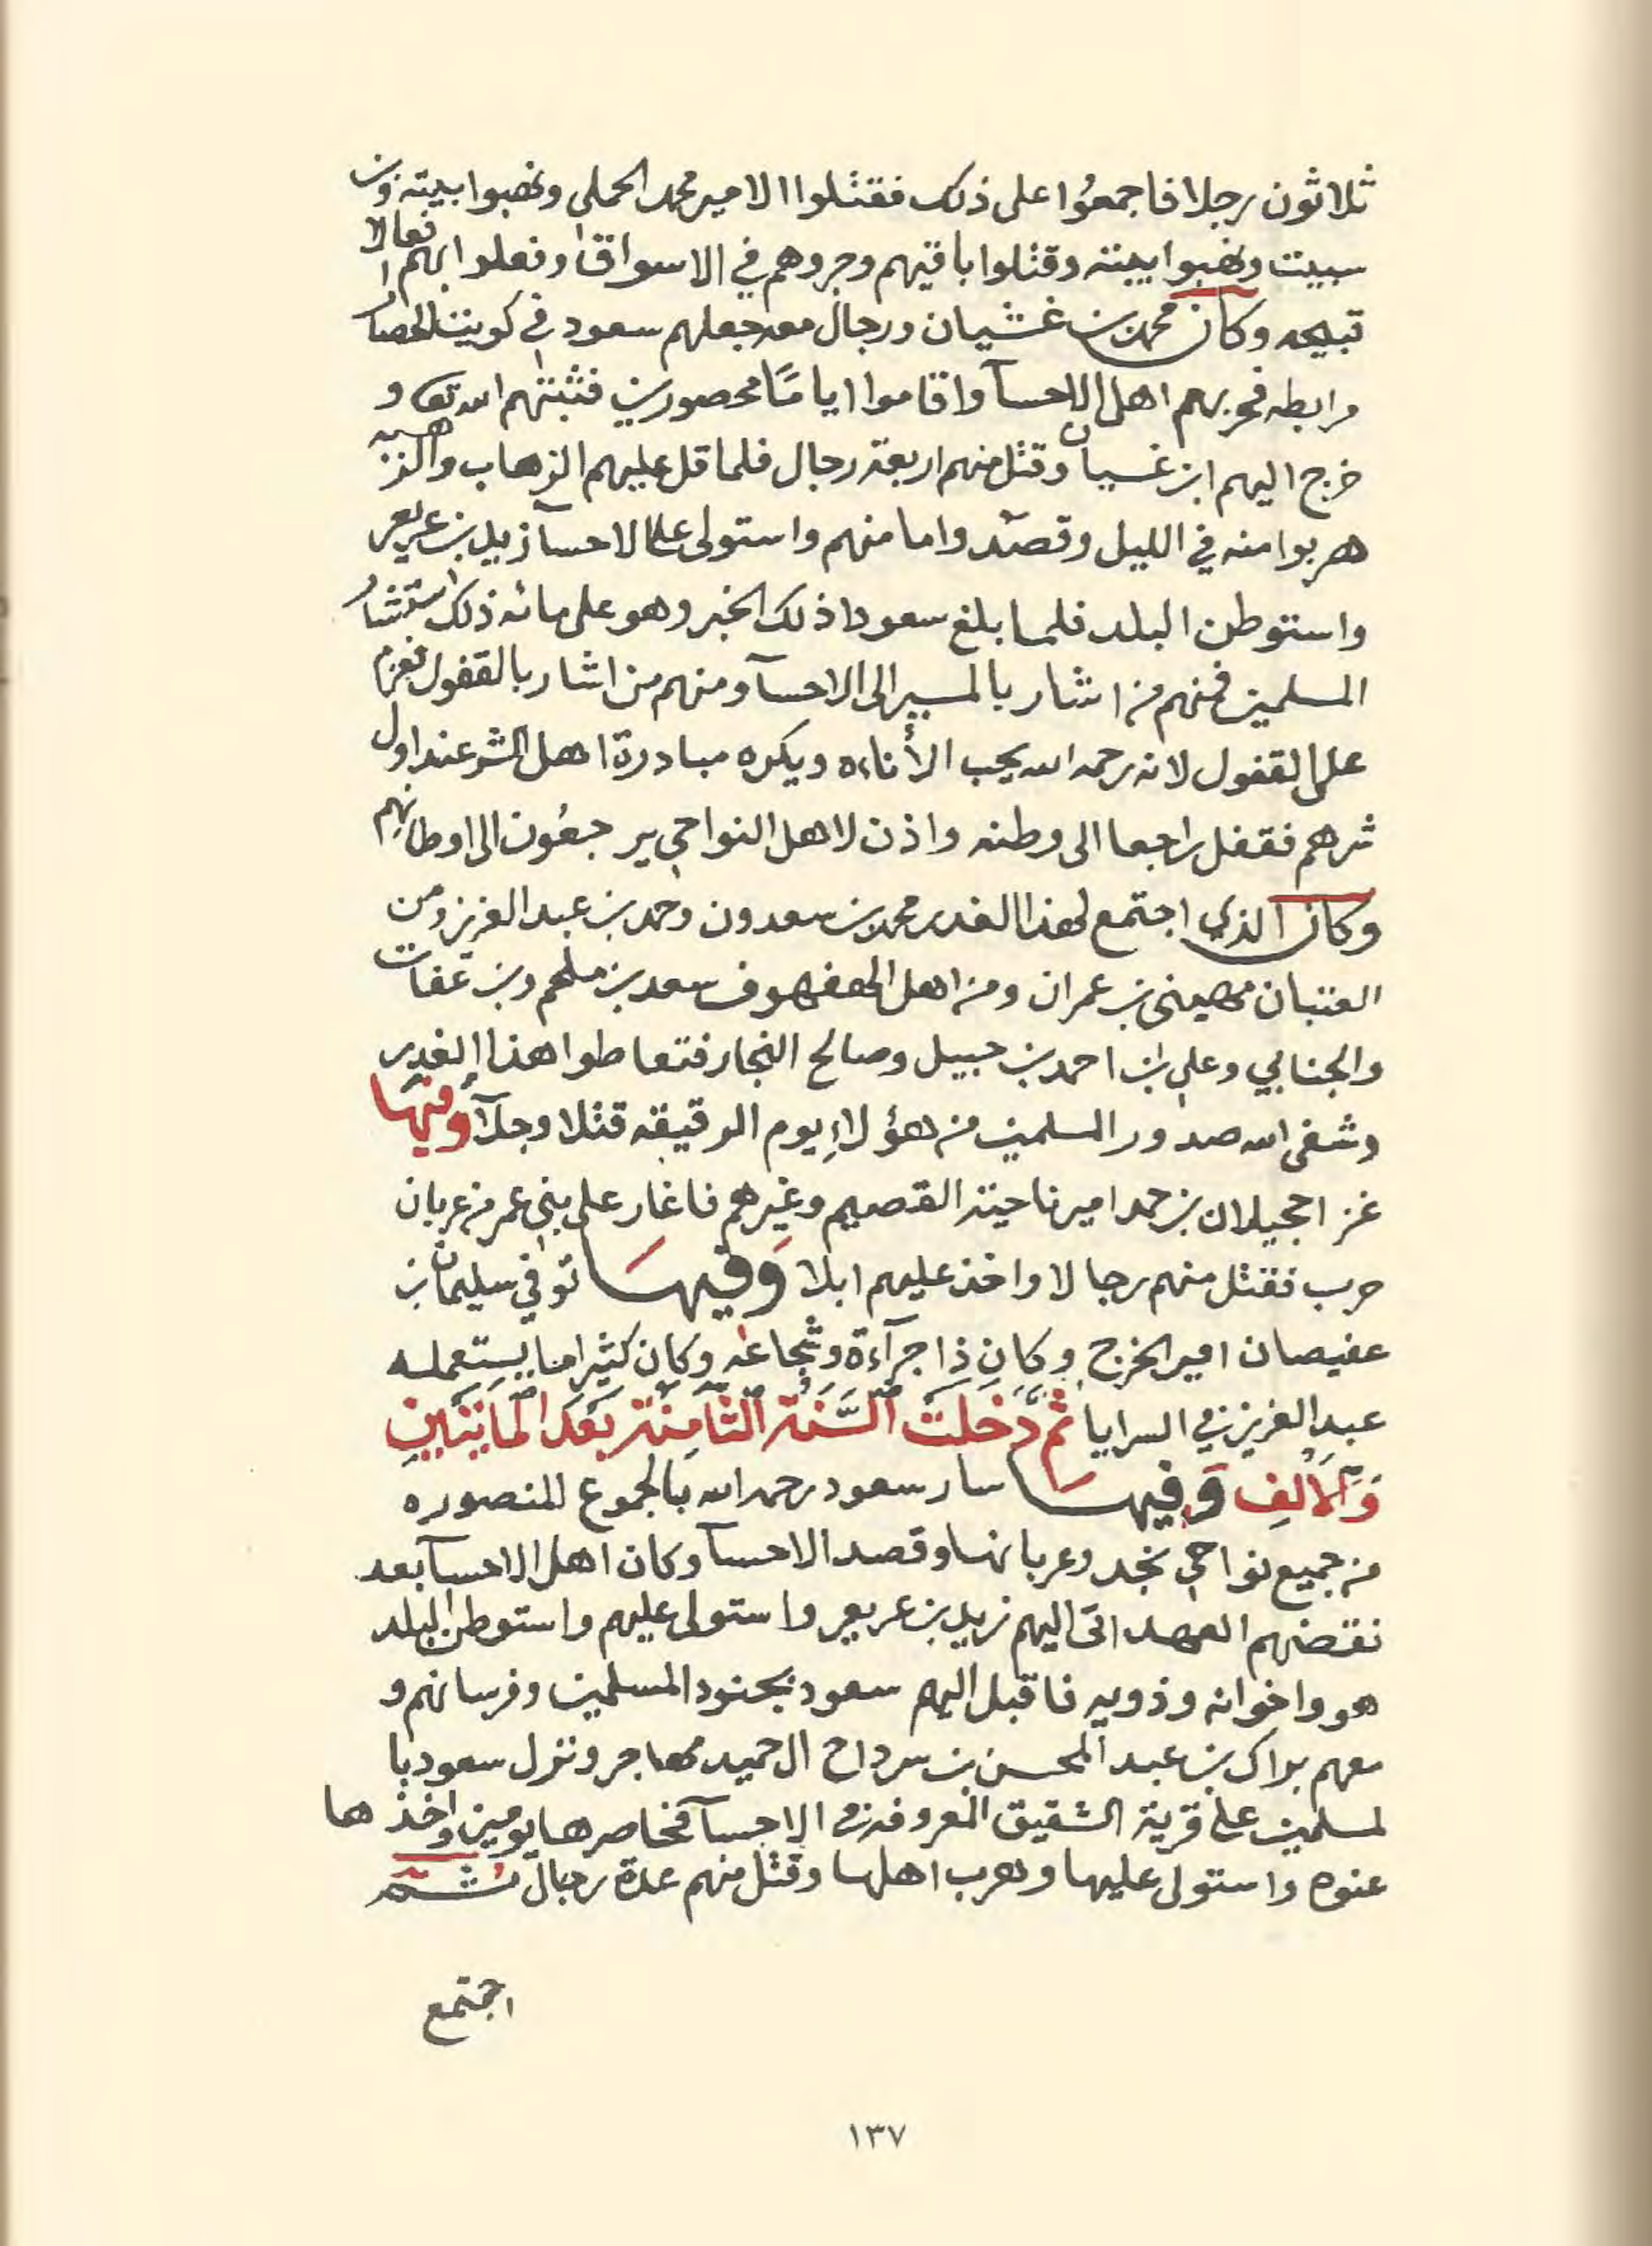 ثلاثون رجلا فاجمعوا على ذلك فقتلوا الامير محمد الحملي ونهبوا بيته وبن
سبيت ونهبوا بيته وقتلوا باقيهم وجروهم في الاسواق وفعلوا بهم افعالا
قبيحه وكان محمد بن غشيان ورجال معه جعلهم سعود في كويت الحصار
مرابطه فحربهم اهل الاحسآ واقاموا اياما محصورين فثبتهم الله تع و
خرج اليهم ابن غسيان وقتل منهم اربعة رجال فلما قل عليهم الزهاب والزهبه
هربوا منه في الليل وقصدوا مامنهم واستولى على الاحسآ زيد بن عريعر
واستوطن البلد فلما بلغ سعودا ذلك الخبر وهو على مائه ذلك استشار
المسلمين فمنهم من اشار بالمسير الى الاحسآ ومنهم من اشار بالقفول فعزم
على القفول لانه رحمه الله يحب الأناه ويكره مبادرة اهل الشر عند اول
شرهم فقفل راجعا الى وطنه واذن لاهل النواحي يرجعون الى اوطانهم
وكان الذي اجتمع لهذا الغدر محمد بن سعدون وحمد بن عبد العزيز ومن
العتبان مهيني بن عمران ومن اهل الهفهوف سعد بن ملحم وبن عفات
والجنابي وعلي بن احمد بن حبيل وصالح النجار فتعاطوا هذا الغدر
وشفى الله صدور المسلمين من هؤلاءِ يوم الرقيقه قتلا وجلآ وفيها
غزا حجيلان بن حمد امير ناحية القصيم وغيرهم فاغار على بني عمر من عربان
حرب فقتل منهم رجالا واخذ عليهم ابلا وَفيهَا توفي سليمان بن
عفيصان امير الخرج وكان ذا جرآءة وشجاعه وكان كثيرا ما يستعمله
عبد العزيز في السرايا ثم دَخلتْ السَّنة الثامِنة بعَد المائتَينِ
وَالالفِ وَفيهَا سار سعود رحمه الله بالجموع المنصوره
من جميع نواحي نجد وعربانها وقصد الاحسآ وكان اهل الاحسآ بعد
نقضهم العهد اتى اليهم زيد بن عريعر واستولى عليهم واستوطن البلد
هو واخوانه وذويه فاقبل اليهم سعود بجنود المسلمين وفرسانهم و
معهم براك بن عبد المحسن بن سرداح ال حميد مهاجر ونزل سعود با
لمسلمين على قرية الشقيق المعروفه في الاحسآ فحاصرها يومين واخذها
عنوه واستولى عليها وهرب اهلها وقتل منهم عدة رجال ثم
اجتمع
١٣٧